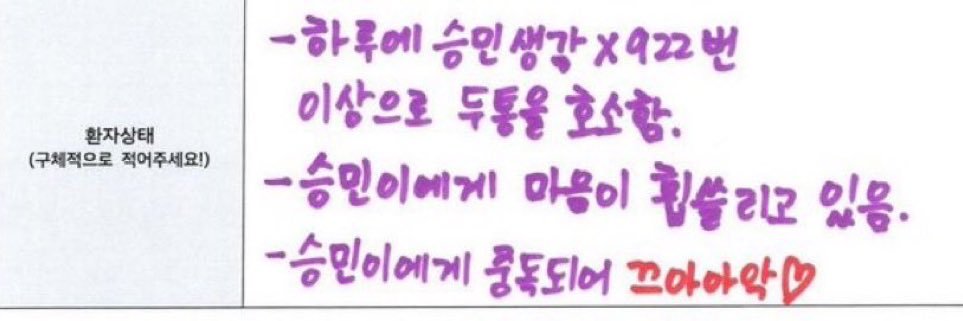 환자상태
(구체적으로 적어주세요!)
-하루에 승민생각 x922번
이상으로 두통을 호소함.
-승민이에게 마음이 휩쓸리고 있음.
-승민이에게 중독되어 끄아아악♡